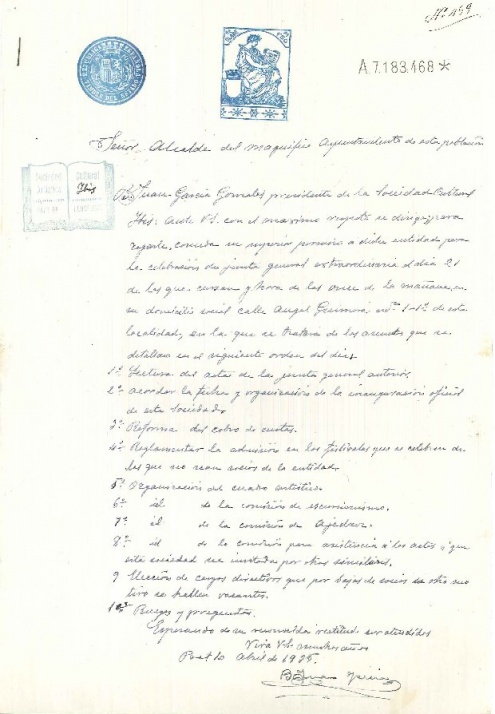 Nº 499
A7.183.468*
Señor Alcalde del magnifico Ayuntamiento de esta población
Ibis
Juan García Gonzales presidente de la Sociedad Cultural
Ibis: ante Vd. con el maximo respeto se dirige para
rogarle, conceda su superior permiso a dicha entidad para
la celebración de junta general extraordinaria el dia 21
de los que cursan y hora de las once de la mañana, en
su domicilio social calle Angel Guimerá, nº 1-1º de esta
localidad, en la que se tratará de los asuntos que se
detallan en el siguiente orden del dia:
1º Lectura del acta de la junta general anterior.
2º Acordar la fecha y organización de la inauguración oficial
de esta Sociedad.
3º Reforma del cobro de cuotas.
4º Reglamentar la admisión en los festivales que se celebren de
los que no sean socios de la entidad.
5º Organización del cuadro artístico.
6º id de la comisión de excursionismo.
7º id de la comisión de Ajedrez.
8º id de la comisión para asistencia á los actos á que
esta sociedad sea invitada por otras similares.
9 Elección de cargos directivos que por bajas de socios u otro mo
tivo se hallen vacantes.
10º Ruegos y preguntas.
Esperando de su reconocida rectitud ser atendidos
Viva Vd. muchos años
Abril de 1935.